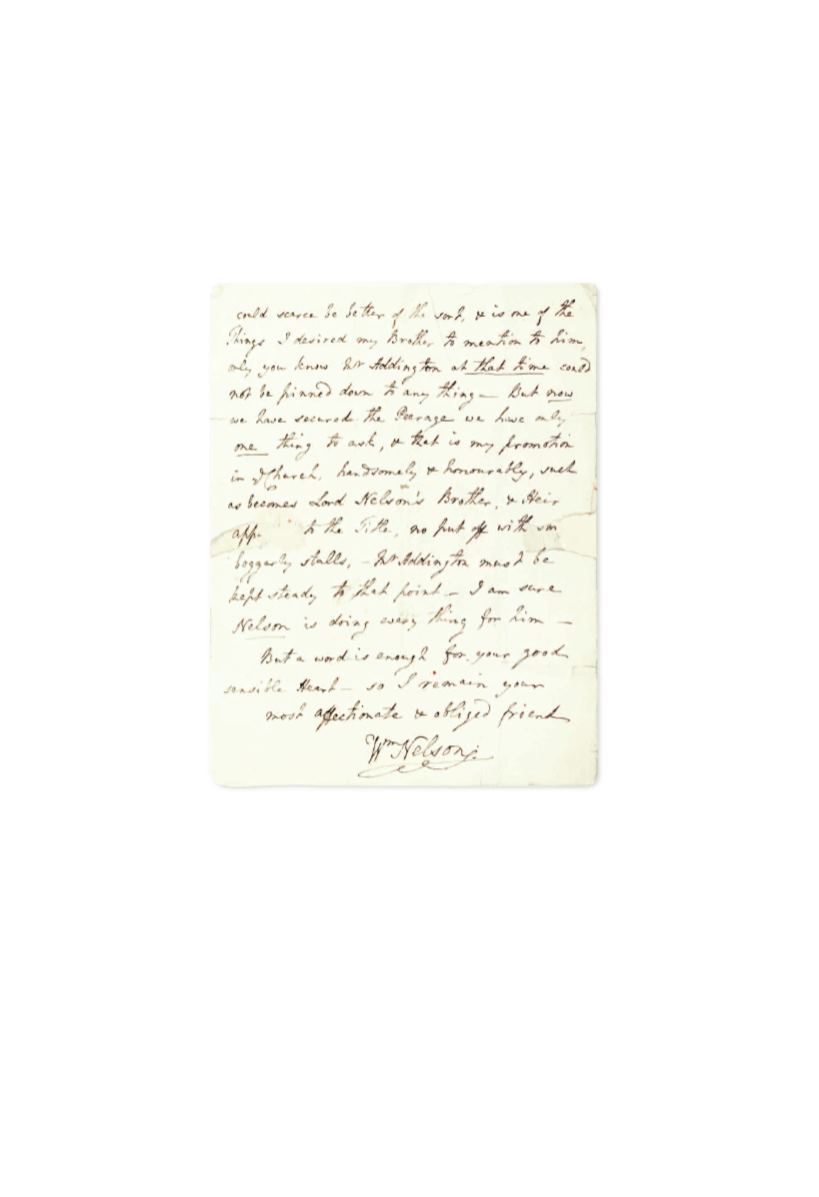 could scarce be better of the sort, & is one of the
Things I desired my Brother to mention to him,
only you know Mr Addington at that time could
not be pinned down to any thing — But now
we have secured the Peerage we have only
one thing to ask, & that is my promotion
in ye Church, handsomely & honourably, such
as becomes Lord Nelson's Brother, & Heir
app to the Title, no put off with
beggarly stalls, — Mr Addington must be
kept steady to that point — I am sure
Nelson is doing every thing for him —
But a word is enough for your good
sensible Heart — so I remain your
most affectionate & obliged friend
Wm Nelson